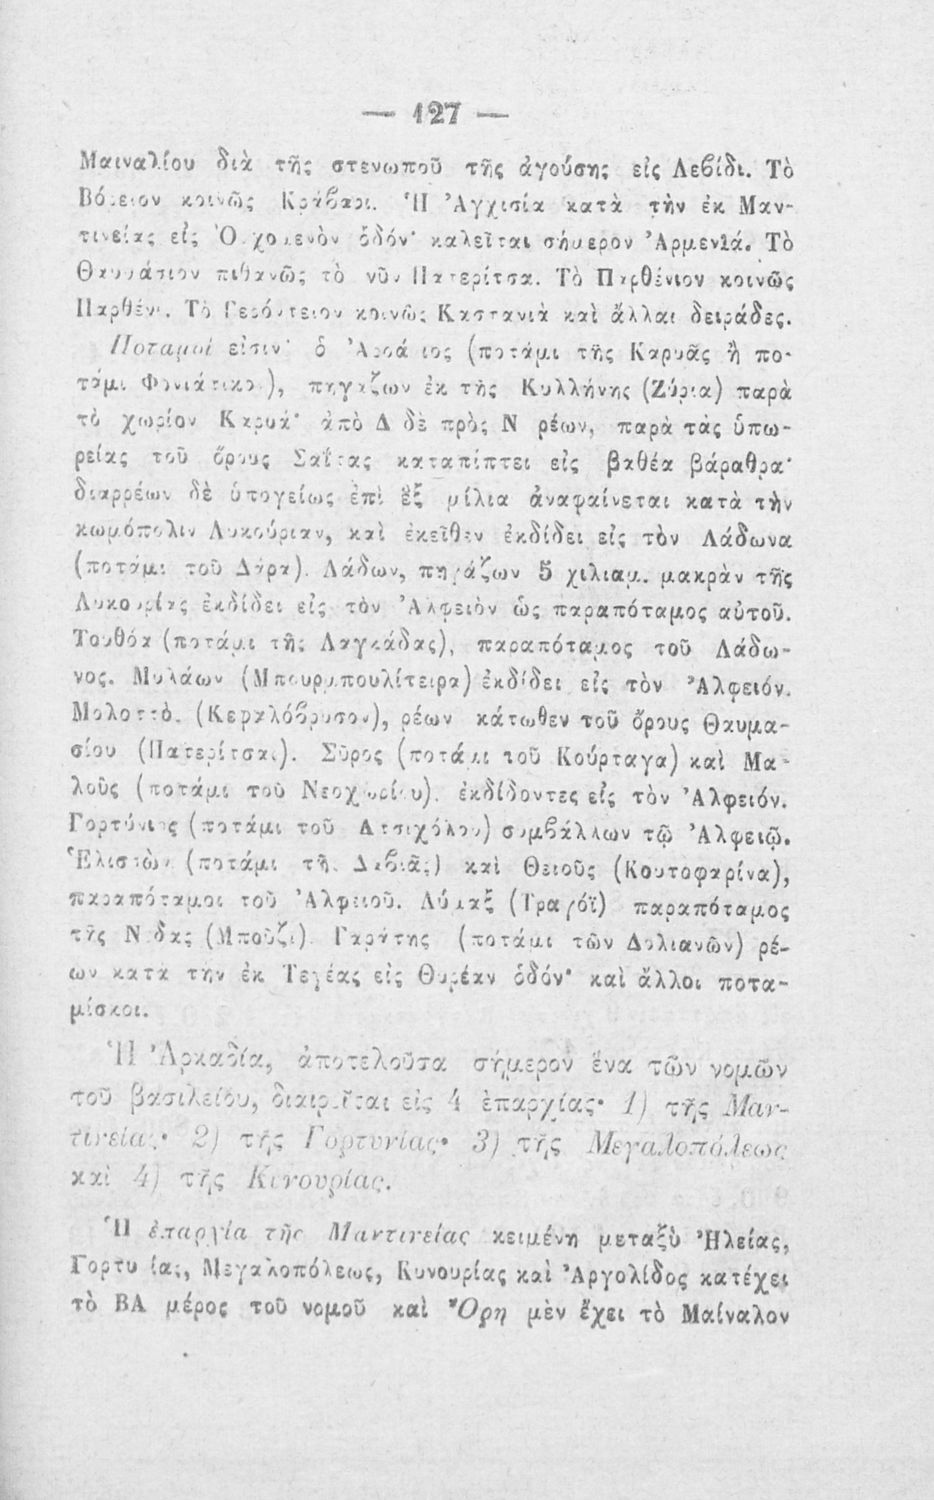 — 127 —
Μαιναλίου διὰ τῆς στενωποῦ τῆς ἀγούσης εἰς Λεβίδι. Τὸ
Βόρειον κοινῶς Κράβαρι. Ἡ Ἀγχισία κατὰ τὴν ἐκ Μαν-
τινείας εἰς Ὀρχομενὸν ὁδόν· καλεῖται σήμερον Ἀρμενιά. Τὸ
Θαυμάσιον πιθανῶς τὸ νῦν Πατερίτσα. Τὸ Παρθένιον κοινῶς
Παρθένι. Τὸ Γερόντειον κοινῶς Καστανιὰ καὶ ἄλλαι δειράδες.
Ποταμοὶ εἰσιν· ὁ (ποτάμι τῆς Καρυᾶς ἢ πο-
τάμι Φονιάτικο), πηγάζων ἐκ τῆς Κυλλήνης (Ζύρια) παρὰ
τὸ χωρίον Καρυά· ἀπὸ Δ δὲ πρὸς Ν ρέων, παρὰ τὰς ὑπω-
ρείας τοῦ ὄρους Σαΐτας καταπίπτει εἰς βαθέα βάραθρα·
διαρρέων δὲ ὑπογείως ἐπὶ ἓξ μίλια ἀναφαίνεται κατὰ τὴν
κωμόπολιν Λυκούριαν, καὶ ἐκεῖθεν ἐκδίδει εἰς τὸν Λάδωνα
(ποτάμι τοῦ Δάρα). Λάδων, πηγάζων 5 χιλιαμ. μακρὰν τῆς
Λυκουρίας ἐκδίδει εἰς τὸν Ἀλφειὸν ὡς παραπόταμος αὐτοῦ.
Τουθόα (ποτάμι τῆς Λαγκάδας), παραπόταμος τοῦ Λάδω-
νος. Μυλάων (Μπουρμπουλίτειρα) ἐκδίδει εἰς τὸν Ἀλφειόν.
(Κεφαλόβρυσον), ρέων κάτωθεν τοῦ ὄρους Θαυμα-
σίου (Πατερίτσαι). Σῦρος (ποτάμι τοῦ Κούρταγα) καὶ Μα-
λοῦς (ποτάμι τοῦ Νεοχωρίου). ἐκδίδοντες εἰς τὸν Ἀλφειόν.
Γορτύνιος (ποτάμι τοῦ Ατσιχόλου) συμβάλλων τῷ Ἀλφειῷ.
Ἑλισσὼν (ποτάμι τῆς Δαβιᾶς) καὶ Θειοῦς (Κουτοφαρίνα),
παραπόταμοι τοῦ Ἀλφειοῦ. Λύμαξ (Τραγόϊ) παραπόταμος
τῆς Νέδας (Μποῦζι). Γαράτης (ποτάμι τῶν Δολιανῶν) ρέ-
ων κατὰ τὴν ἐκ Τεγέας εἰς Θυρέαν ὁδόν· καὶ ἄλλοι ποτα-
μίσκοι.
Ἡ Ἀρκαδία, ἀποτελοῦσα σήμερον ἕνα τῶν νομῶν
τοῦ βασιλείου, διαιρεῖται εἰς 4 ἐπαρχίας· 1) τῆς Μαν-
τινείας· 2) τῆς Γορτυνίας· 3) τῆς Μεγαλοπόλεως
καὶ 4) τῆς Κινουρίας.
Ἡ ἐπαρχία τῆς Μαντινείας κειμένη μεταξὺ Ἠλείας,
Γορτυνίας, Μεγαλοπόλεως, Κυνουρίας καὶ Ἀργολίδος κατέχει
τὸ ΒΑ μέρος τοῦ νομοῦ καὶ Ὄρη μὲν ἔχει τὸ Μαίναλον